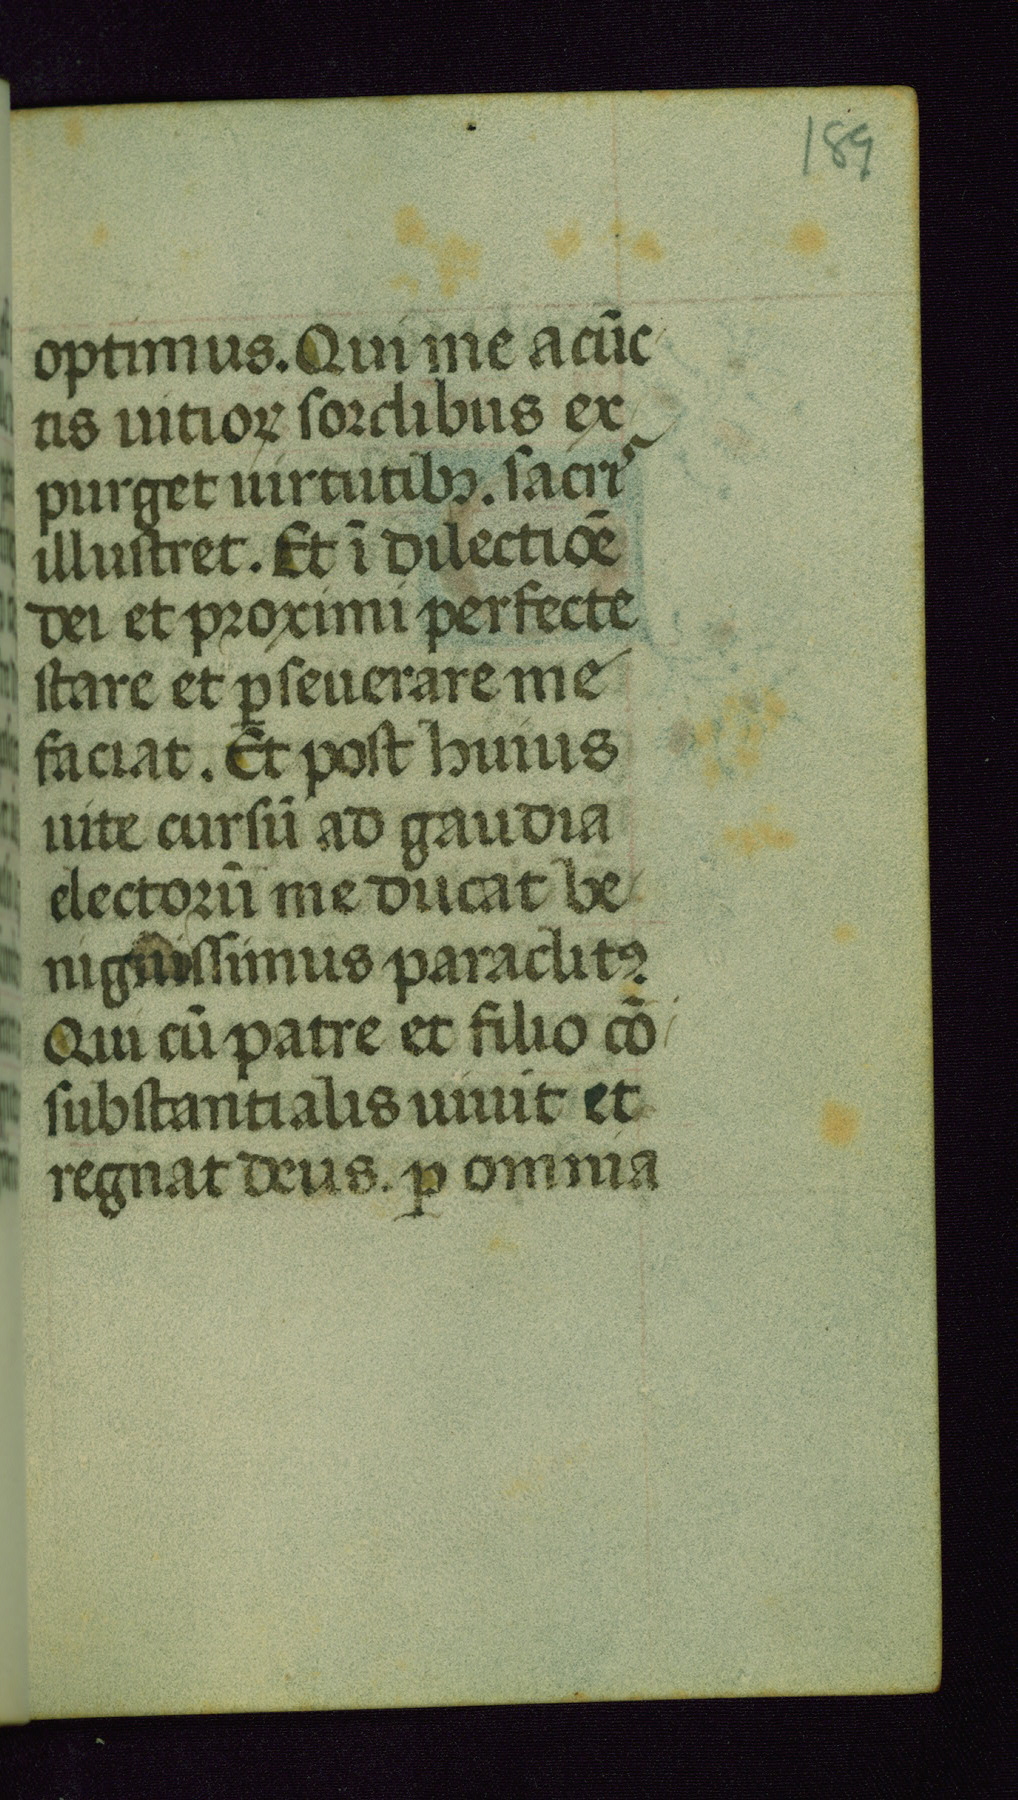 189
optimus. Qui me a cūc
tis uitioꝝ sordibus ex
purget uirtutibꝫ. sacris
illustret. Et ī dilectiōe
dei et proximi perfecte
stare et ꝑseuerare me
faciat. Et post huius
uite cursū ad gaudia
electorū me ducat be
nignissimus paraclitꝰ
Qui cū patre et filio cō
substantialis uiuit et
regnat deus. ꝑ omnia